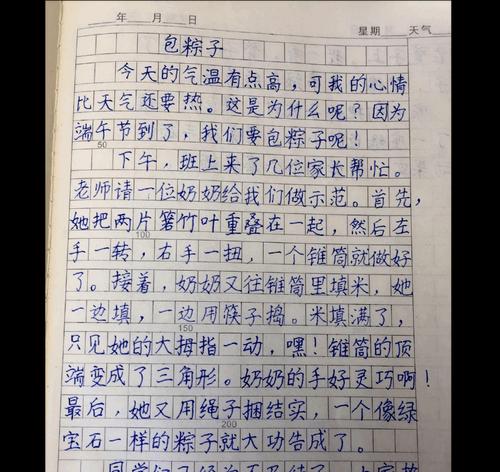 年 月 日 星期 天气
包粽子
今天的气温有点高，可我的心情
比天气还要热。这是为什么呢？因为
端午节到了，我们要包粽子呢！
50
下午，班上来了几位家长帮忙。
老师请一位奶奶给我们做示范。首先，
她把两片箬竹叶重叠在一起，然后左
100
手一转，右手一扭，一个锥筒就做好
了。接着，奶奶又往锥筒里填米，她
一边填，一边用筷子捣。米填满了，
150
只见她的大拇指一动，嘿！锥筒的顶
端变成了三角形。奶奶的手好灵巧啊！
最后，她又用绳子捆结实，一个像绿
200
宝石一样的粽子就大功告成了。